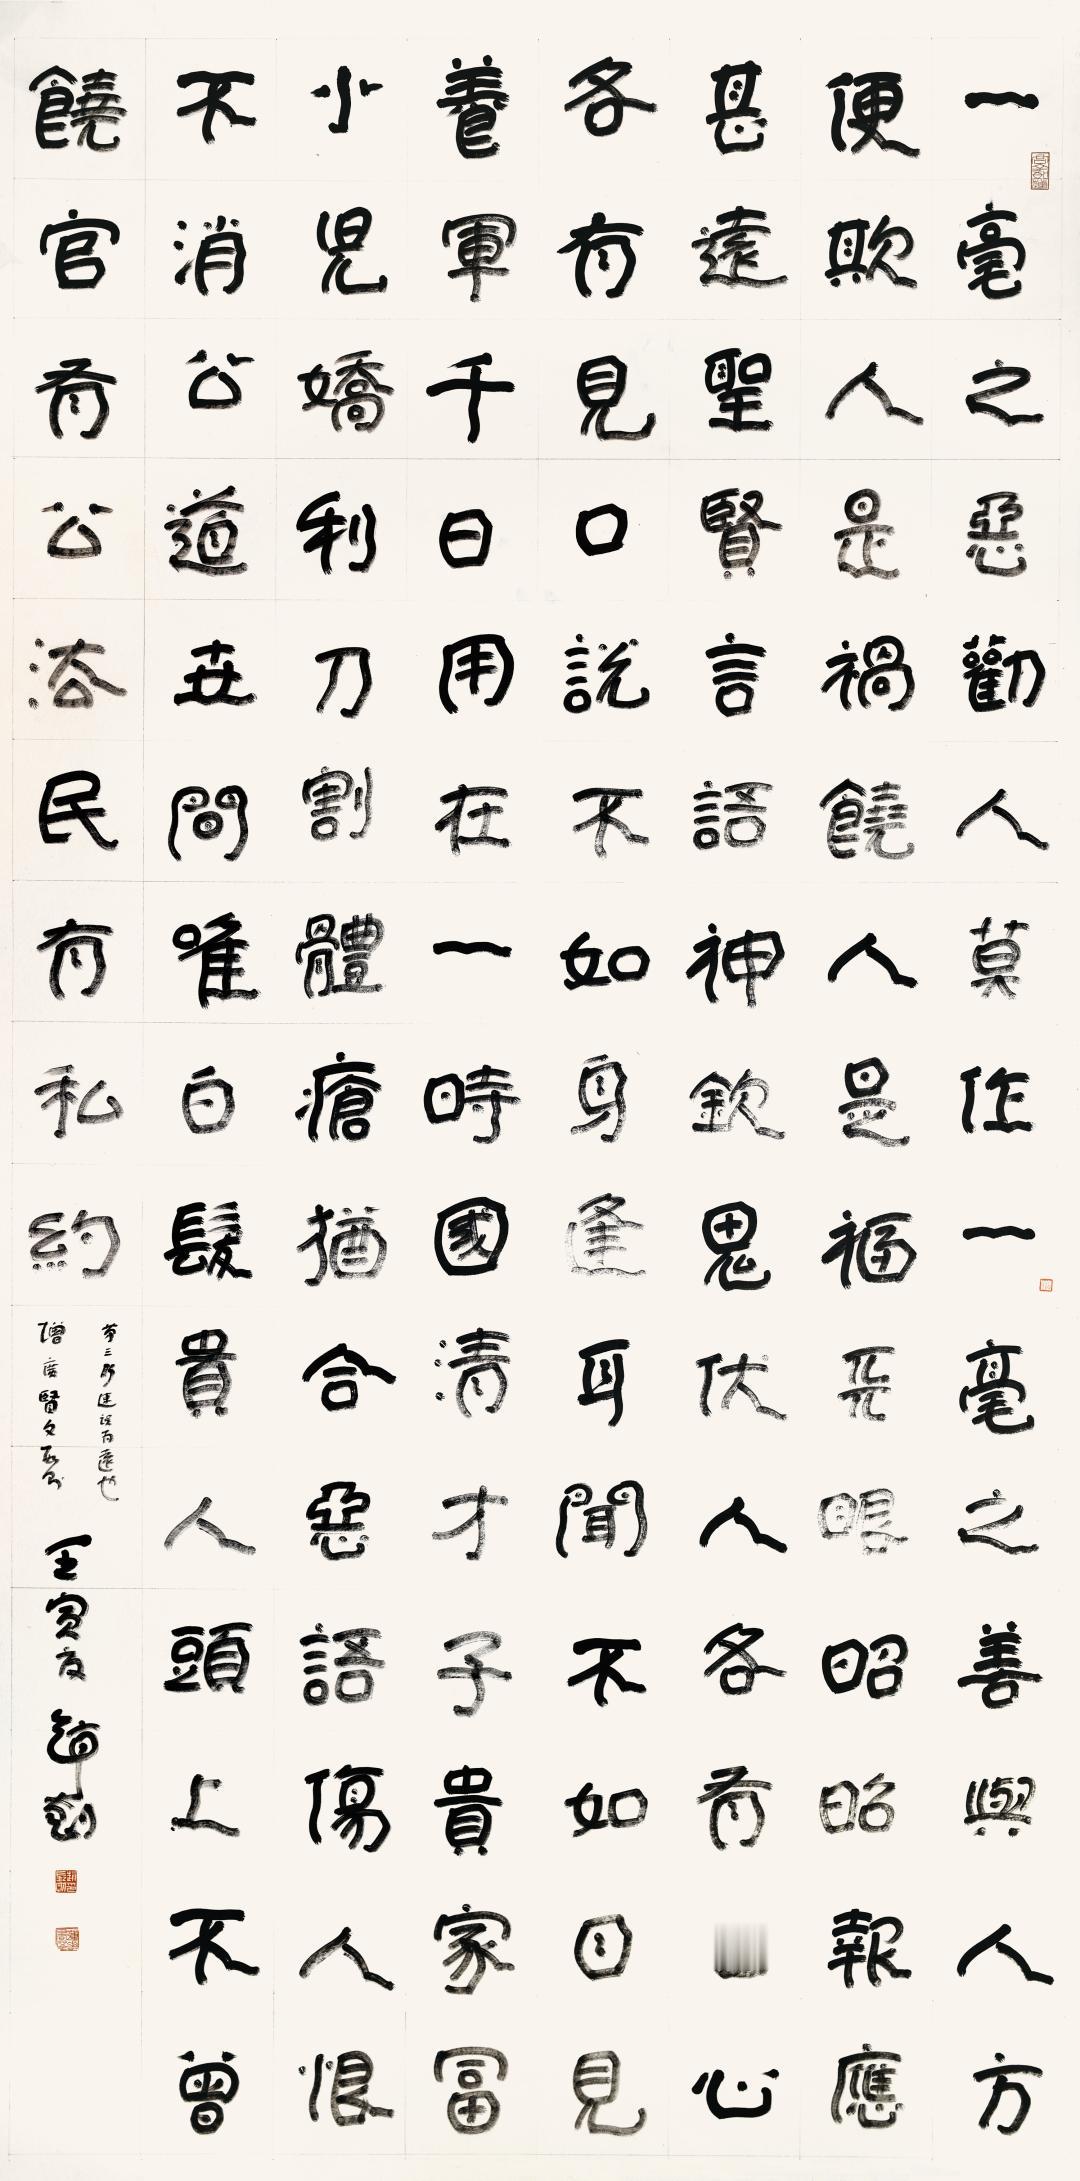 一毫之惡勸人莫作一毫之善與人方
便欺人是禍饒人是福兲眼昭昭報應
甚遠聖賢言語神欽鬼伏人各有心
各有見口說不如身逢耳聞不如目見
養軍千日用在一時國清才子貴家富
小兒嬌利刀割體瘡猶合惡語傷人恨
不消公道世間唯白髮貴人頭上不曾
饒官有公法民有私約
第三行速誤為遠也
增廣賢文
壬寅夏